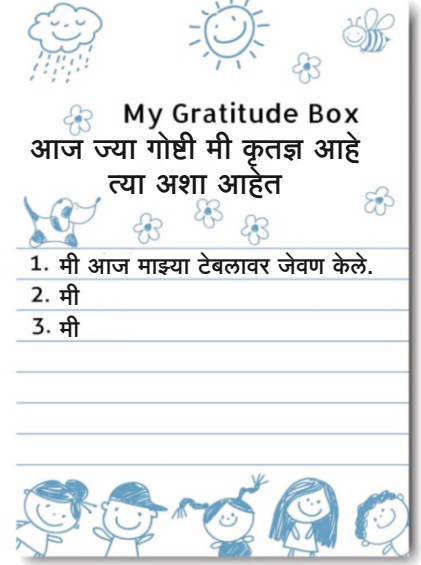 My Gratitude Box
आज ज्या गोष्टी मी कृतज्ञ आहे
त्या अशा आहेत
1. मी आज माझ्या टेबलावर जेवण केले.
2. मी
3. मी